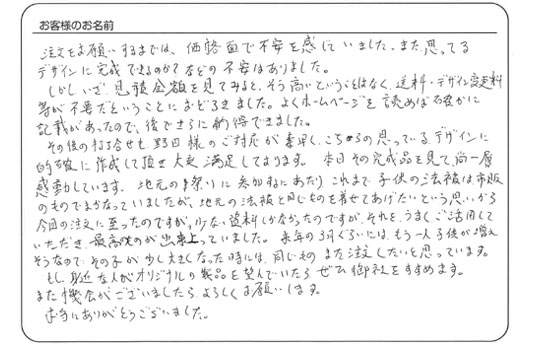 お客様のお名前
注文をお願いするまでは、価格面で不安を感じていました。また思ってる
デザインに完成できるのか?などの不安はありました。
しかしいざ、見積金額を見てみると、そう高いということはなく、送料・デザイン設定料
等が不要だということにおどろきました。よくホームページを読めば確かに
記載があったので、後でさらに納得できました。
その後の打合せも野田様のご対応が素早く、こちらの思っているデザインに
的確に作成して頂き大変満足しております。本日その完成品を見て、尚一層
感動しています。地元の祭りに参加するにあたり、これまで子供の法被は市販
のものでまかなっていましたが、地元の法被と同じものを着せてあげたいという思いから
今回の注文に至ったのですが、少ない資料しかなかったのですが、それをうまくご活用して
いただき、最高のものが出来上っていました。来年の3月ぐらいには、もう一人子供が増え
そうなので、その子が少し大きくなった時には、同じものをまた注文したいと思っています。
もし、身近な人がオリジナルの製品を望んでいたらぜひ御社をすすめます。
また機会がございましたら、よろしくお願いします。
本当にありがとうございました。